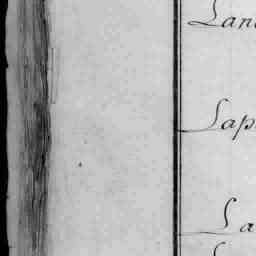 Lan
Lap
La